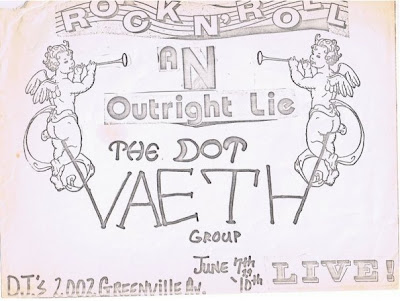 ROCK N' ROLL
AN
Outright Lie
THE DOT
VAETH
GROUP
JUNE 7th
to 10th
D.J.'s 2002 GREENVILLE AV.
LIVE!